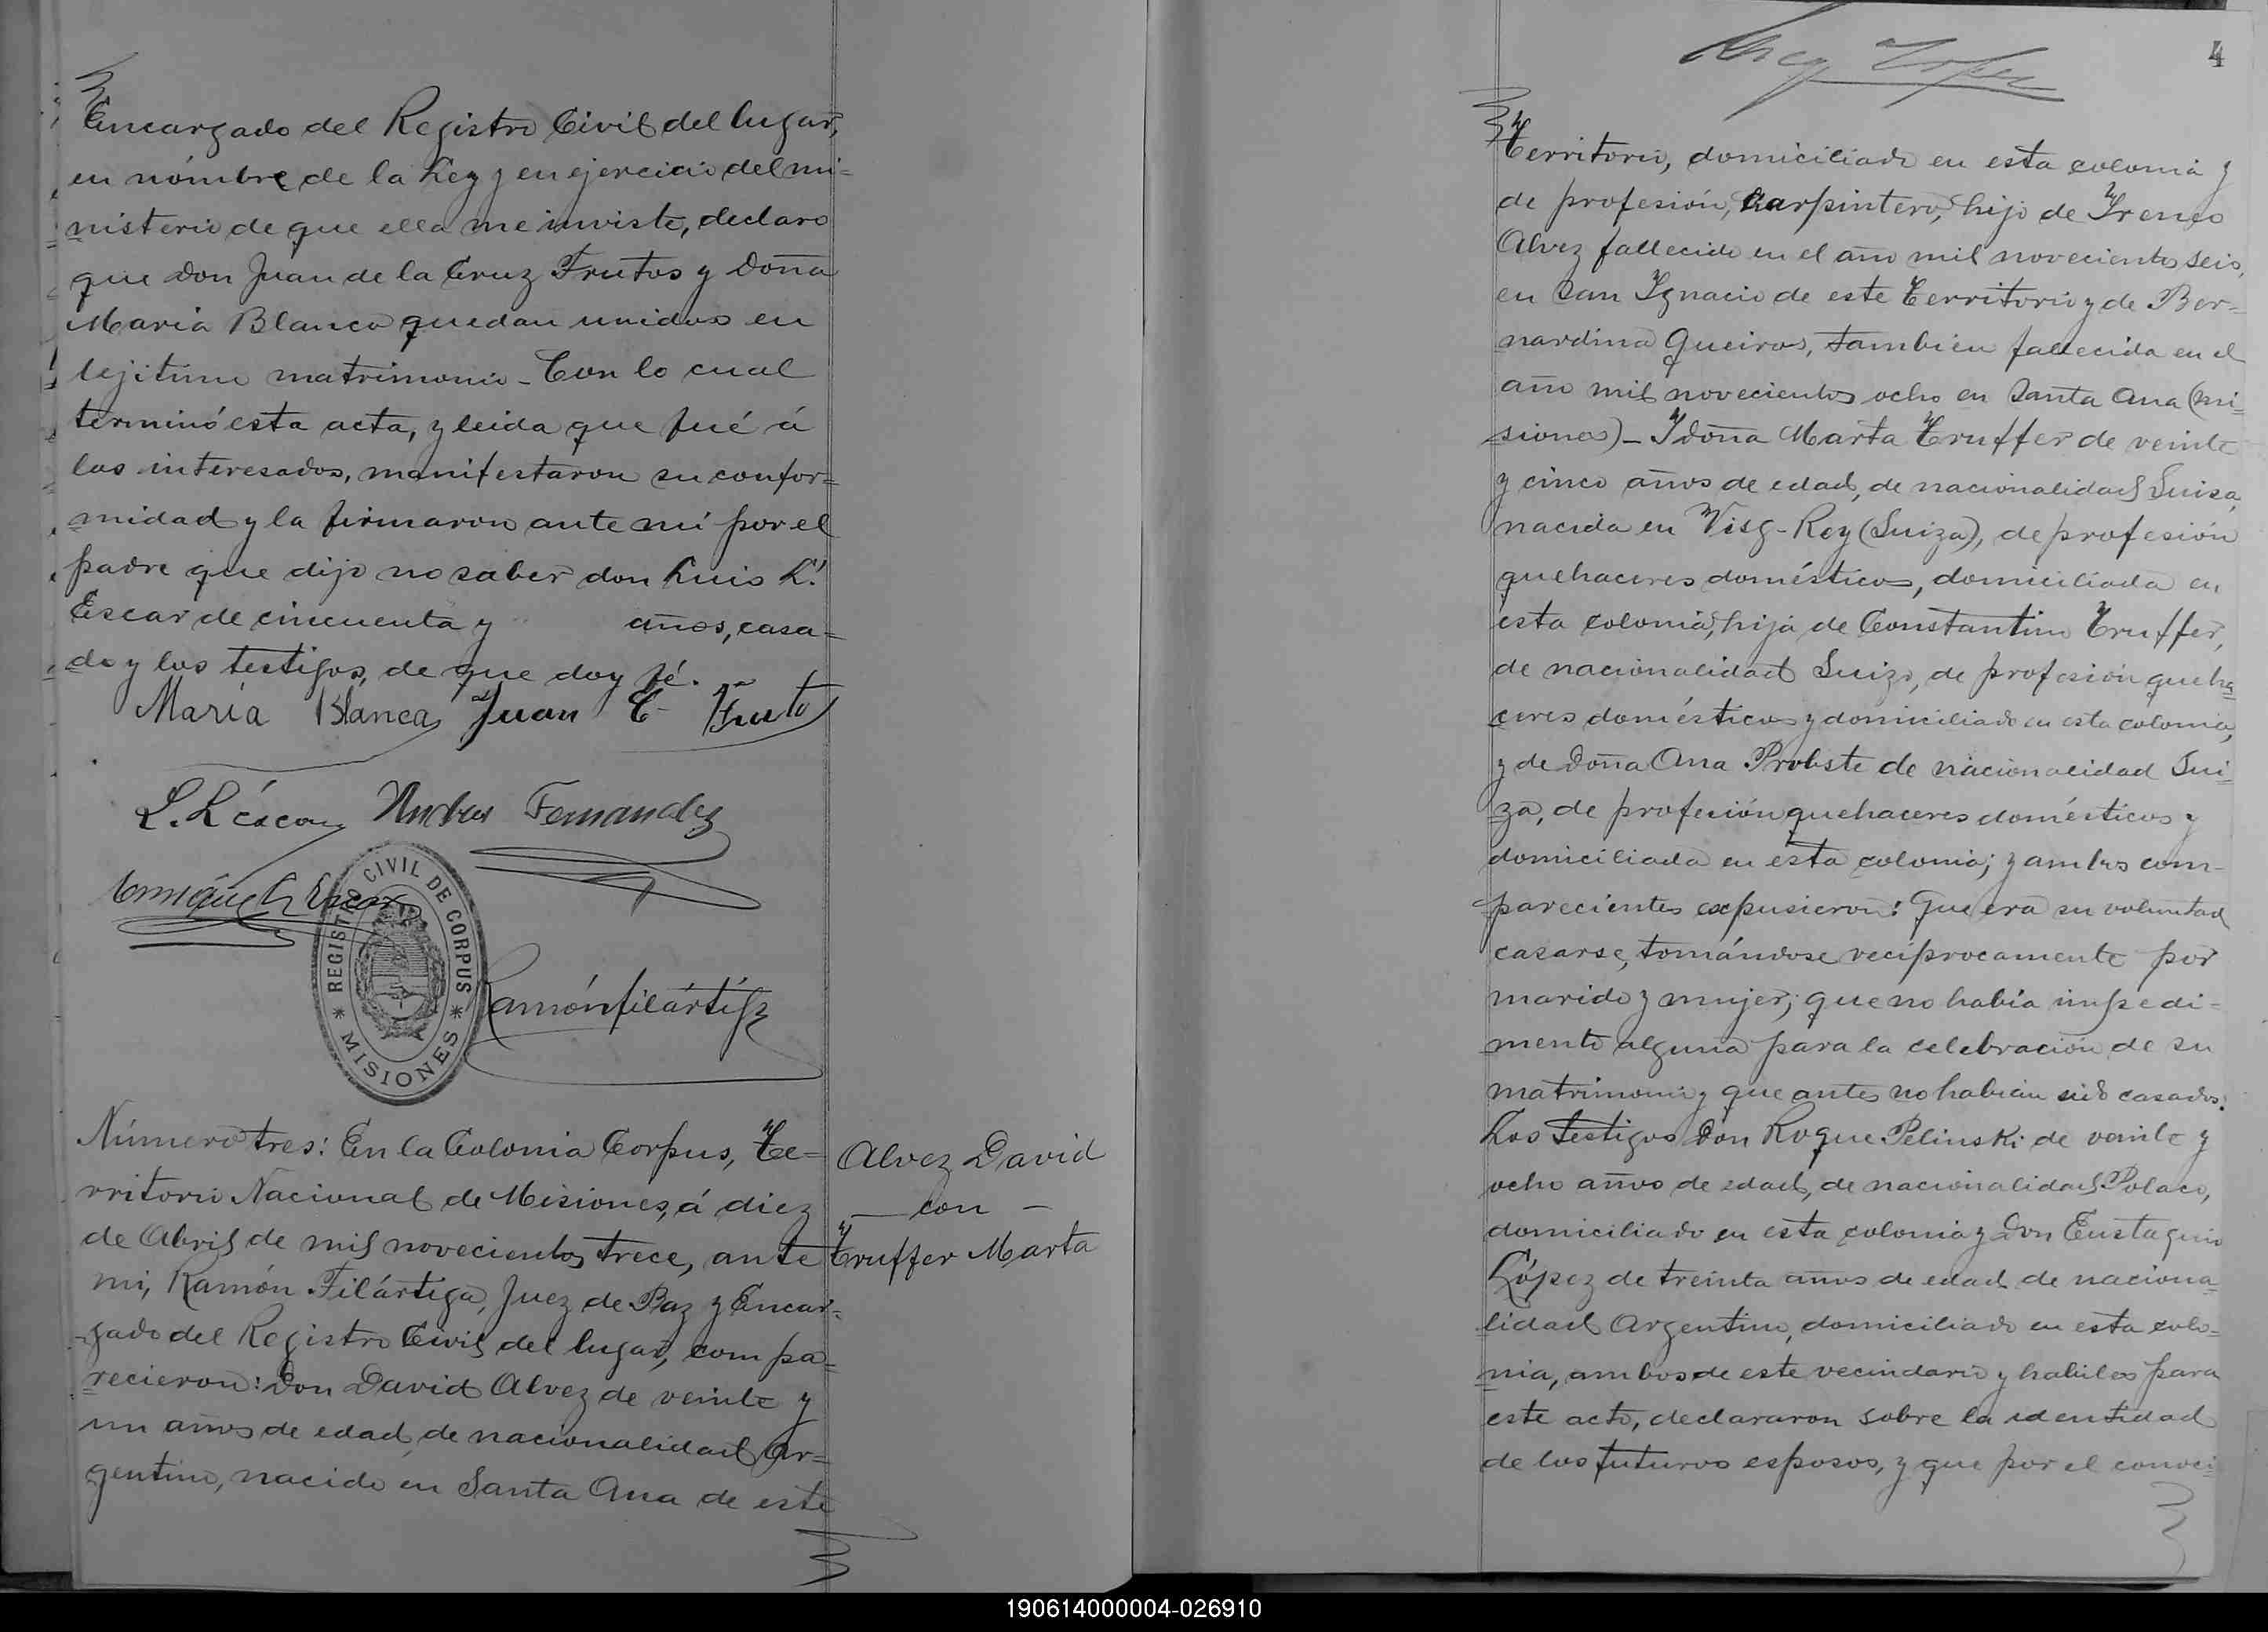 Encargado del Registro Civil del lugar,
en nómbre de la Ley y en ejercicio del mi=
nisterio de que ella me inviste, declaro
que don Juan de la Cruz Frutos y doña
María Blanco quedan unidos en
lejitimo matrimonio - Con lo cual
terminó esta acta, y leida que fué á
los interesados, manifestaron su confor=
midad y la firmaron ante mí por el
padre que dijo no saber don Luis L.
Escar de cincuenta y años, casa=
do y los testigos, de que doy fé.
María Blanca Juan C Fruto
L. L. éscar Andres Fernandez
Enrique Escar
REGISTRO CIVIL DE CORPUS
* MISIONES *
Ramón Filártiga
Número tres: En la Colonia Corpus, Te=
rritorio Nacional de Misiones, á diez
de Abril de mil novecientos trece, ante
mi, Ramón Filártiga, Juez de Paz y Encar=
gado del Registro Civil del lugar, compa=
recieron: Don David Alvez de veinte y
un años de edad, de nacionalidad Ar=
gentino, nacido en Santa Ana de este
Alvez David
— con —
Truffer Marta
4
Territorio, domiciliado en esta colonia y
de profesión, Carpintero, hijo de Ireneo
Alvez fallecido en el año mil novecientos seis,
en San Ignacio de este Territorio y de Ber=
nardina Queiros, tambien fallecida en el
año mil novecientos ocho en Santa Ana (mi=
siones) - Y doña Marta Truffer de veinte
y cinco años de edad, de nacionalidad Suiza,
nacida en Visg-Rey (Suiza), de profesión
quehaceres domésticos, domiciliada en
esta colonia, hija de Constantino Truffer,
de nacionalidad Suizo, de profesión queha=
ceres domésticos y domiciliado en esta colonia,
y de doña Ana Probste de nacionalidad Sui=
za, de profesión quehaceres domésticos y
domiciliada en esta colonia; y ambos com-
parecientes expusieron: Que era su voluntad
casarse, tomándose recíprocamente por
marido y mujer; que no había impedi=
mento alguno para la celebración de su
matrimonio y que antes no habían sido casados.
Los testigos Don Roque Pelinski de veinte y
ocho años de edad, de nacionalidad Polaco,
domiciliado en esta colonia y Don Eustaquio
López de treinta años de edad de naciona=
lidad Argentino, domiciliado en esta colo=
nia, ambos de este vecindario y habiles para
este acto, declararon sobre la identidad
de los futuros esposos, y que por el conoci=
190614000004-026910